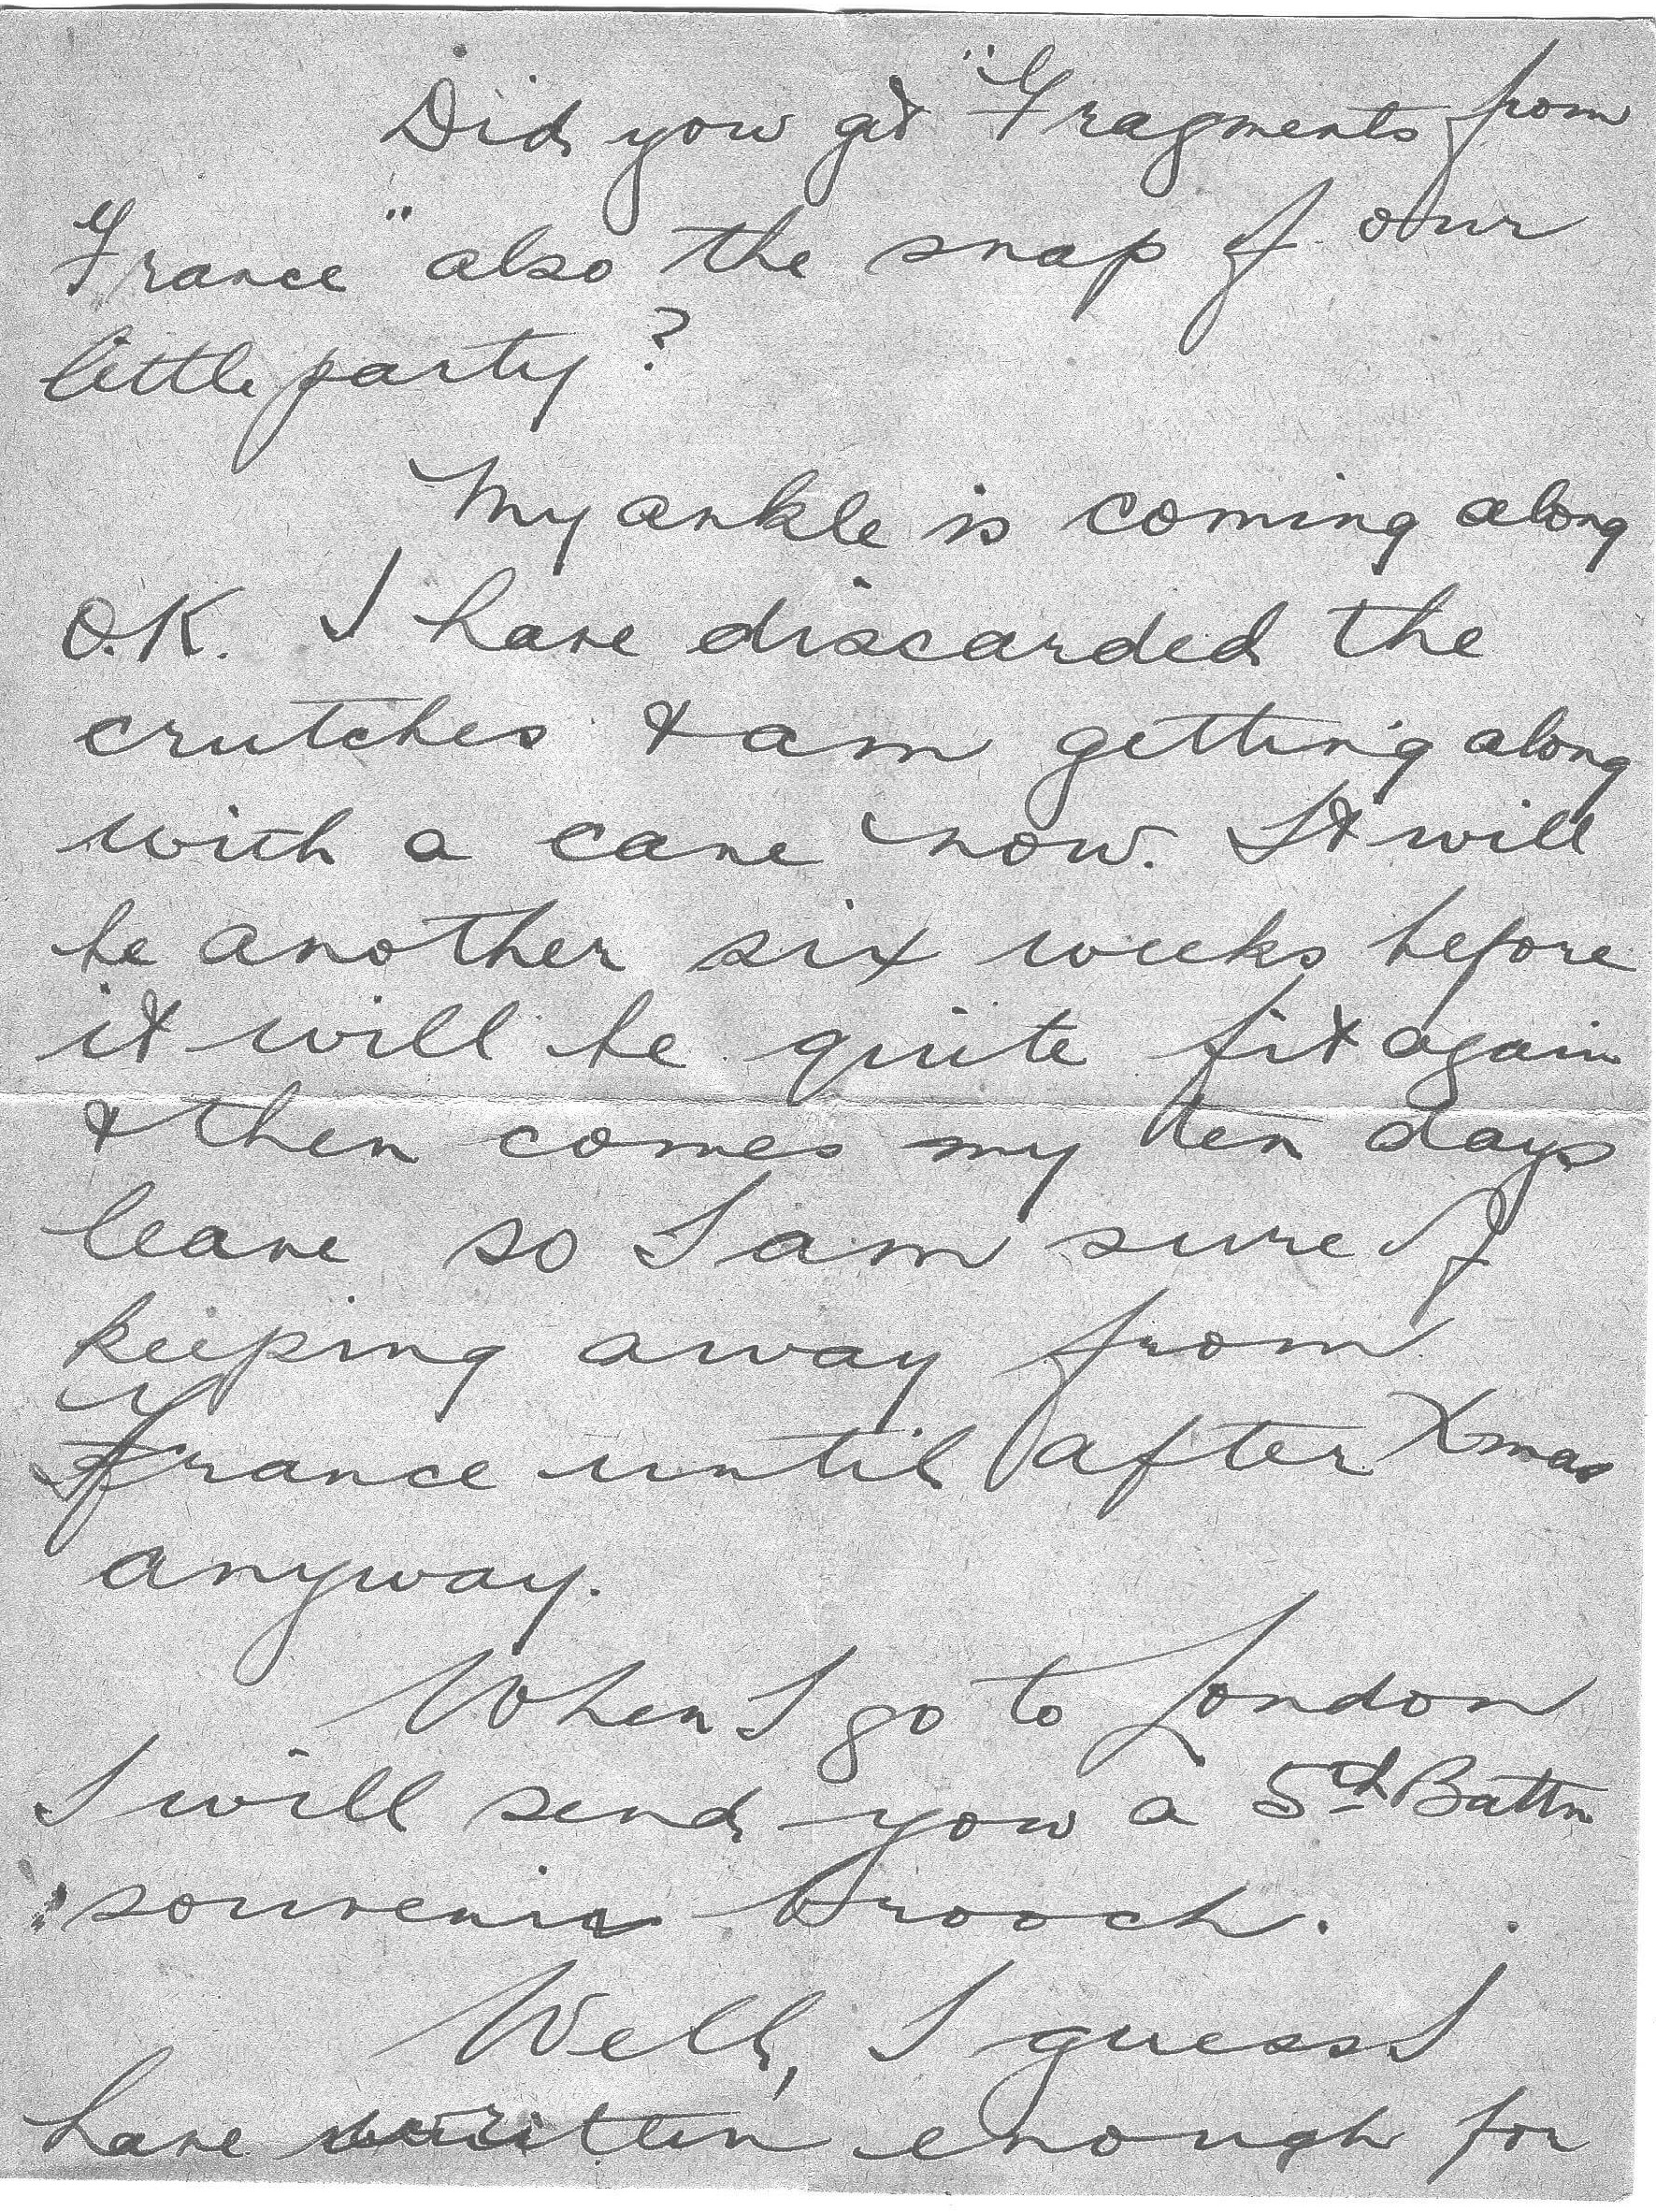 Did you get "Fragments from
France" also the snap of our
little party?
My ankle is coming along
O.K. I have discarded the
crutches & am getting along
with a cane now. It will
be another six weeks before
it will be quite fit again
& then comes my ten days
leave so I am sure of
keeping away from
France until after Xmas
anyway.
When I go to London
I will send you a 5th Battn
souvenir brooch.
Well, I guess I
have written enough for